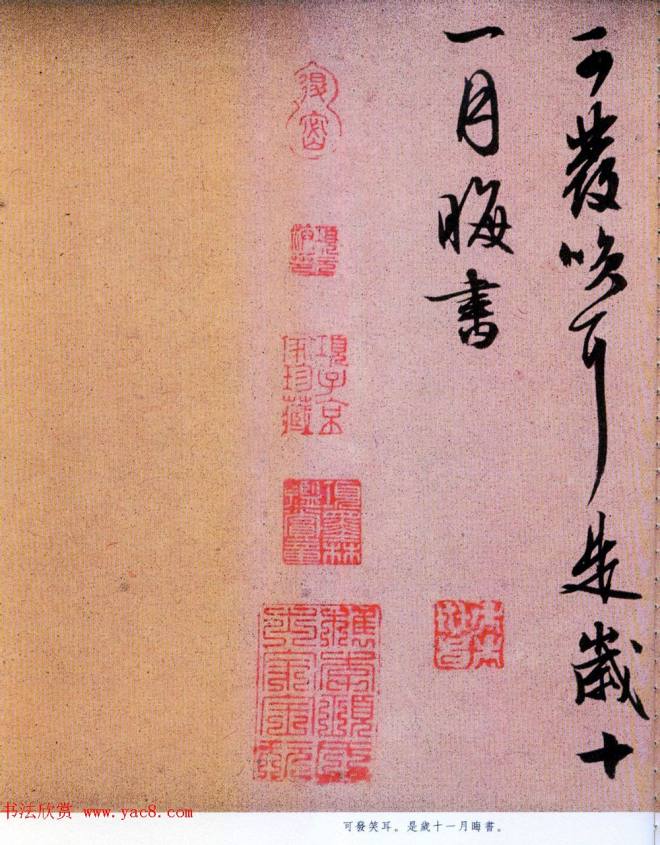 可發笑耳是歲十
一月晦書
項子京
家珍藏
书法欣赏 www.yac8.com
可發笑耳。是歲十一月晦書。